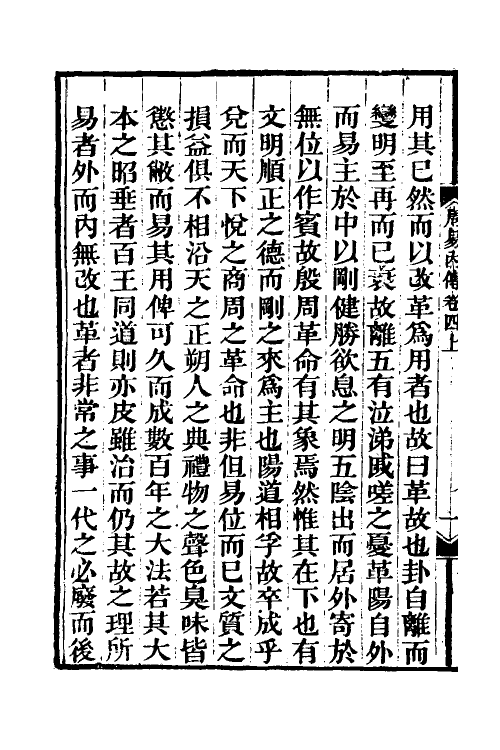 周易內傳卷四上
用其已然而以改革爲用者也故曰革故也卦自離而
變明至再而已衰故離五有泣涕戚嗟之憂革陽自外
而易主於中以剛健勝欲息之明五陰出而居外寄於
無位以作賓故殷周革命有其象焉然惟其在下也有
文明順正之德而剛之來爲主也陽道相孚故卒成乎
兌而天下悅之商周之革命也非但易位而已文質之
損益俱不相沿天之正朔人之典禮物之聲色臭味皆
懲其敝而易其用俾可久而成數百年之大法若其大
本之昭垂者百王同道則亦皮雖治而仍其故之理所
易者外而內無改也革者非常之事一代之必廢而後